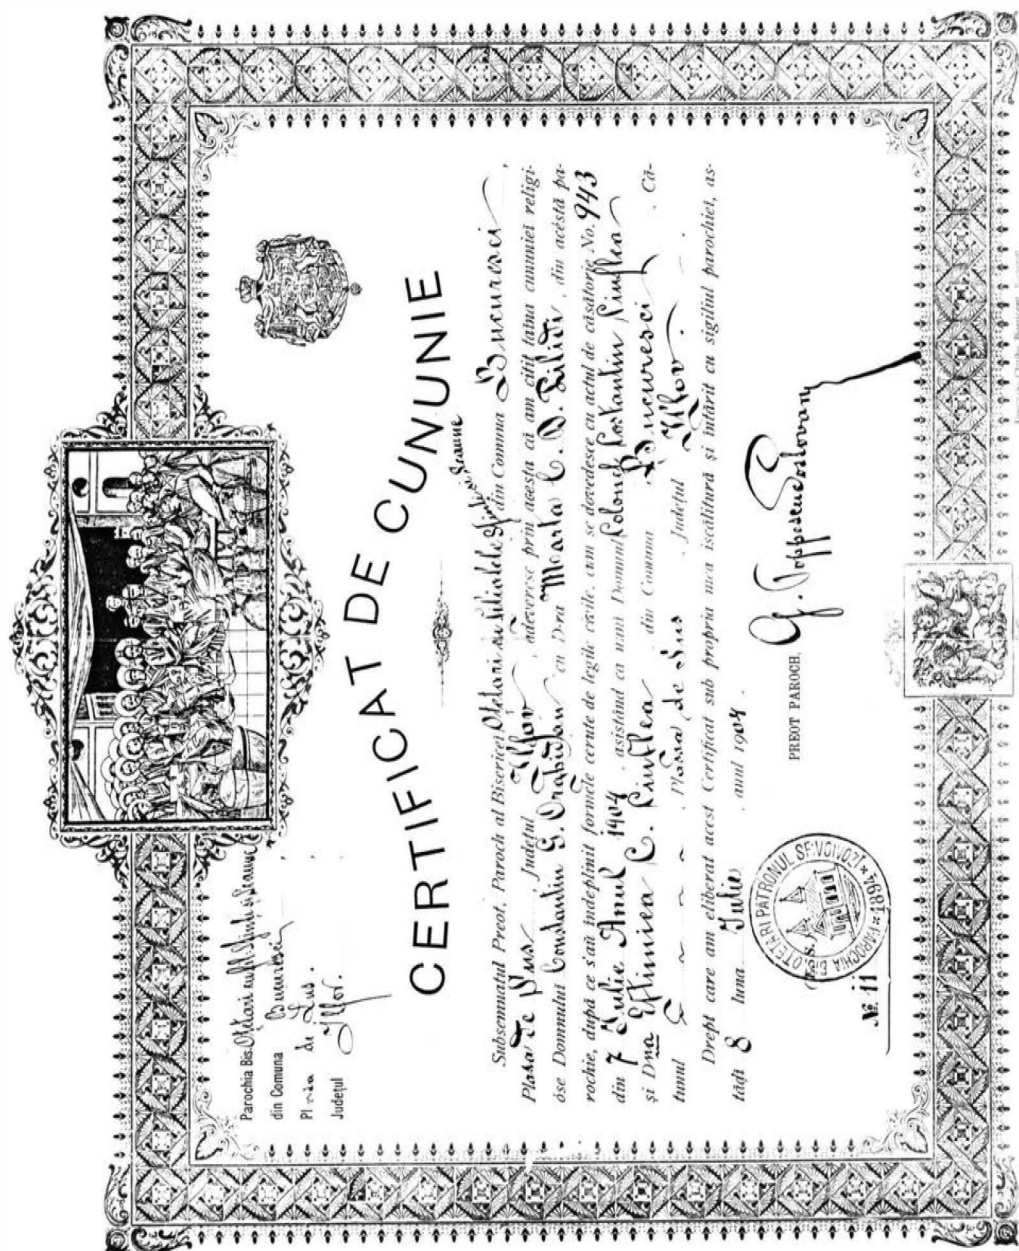 Parochia Bis. Oțetari cu fil. Sfintele Scaune
din Comuna Bucuresci
Plasa de Sus.
Județul Ilfov.
CERTIFICAT DE CUNUNIE
Subsemnatul Preot, Paroch al Bisericei Oțetari cu filialele Sfintele Scaune din Comuna Bucuresci,
Plasa de Sus, Județul Ilfov, adeveresc prin acesta că am citit taina cununiei religi-
óse Domnului Constantin G. cu D-ra Maria C. O. din acéstă pa-
rochie, după ce s'aŭ îndeplinit formele cerute de legile civile, cum se dovedesce cu actul de căsătorie No. 943
din 7 Iulie Anul 1904, asistând ca nuni Domnul Colonel Costantin
și Dna Eftimica C. din Comuna Bucuresci. Că-
tunul Plasa de Sus. Județul Ilfov.
Drept care am eliberat acest Certificat sub propria mea iscălitură și întărit cu sigiliul parochiei, as-
tăḑi 8 luna Iulie, anul 1904
PREOT PAROCH,
G.
L. S.
PAROCHIA BIS. OȚETARI PATRONUL SF: VOIVOZI
1894
№ 11